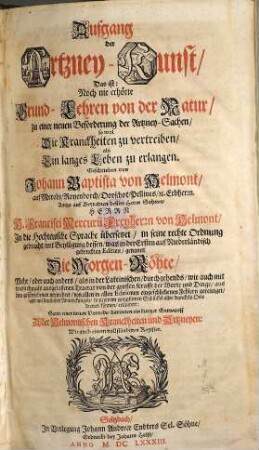 Aufgang
der
Artzney-Kunst/
Das ist:
Noch nie erhörte
Grund-Lehren von der Natur/
zu einer neuen Beförderung der Artzney-Sachen/
so wol
Die Kranckheiten zu vertreiben/
als
Ein langes Leben zu erlangen.
Geschrieben von
Johann Baptista von Helmont/
auf Merode/ Royenborch/ Oorschot/ Pellines/ ꝛc. Erbherrn.
Anitzo auf Beyrahten dessen Herrn Sohnes/
HERRN
H. Francisci Mercurii Freyherrn von Helmont/
In die Hochteutsche Sprache übersetzet/ in seine rechte Ordnung
gebracht/ mit Beyfügung dessen/ was in der Ersten auf Niederländisch
gedruckten Edition/ genannt
Die Morgen-Röhte/
Mehr/ oder auch anders/ als in der Lateinischen/
Samt einer neuen Vorrede
Aller Helmontischen Kranckheiten und Artzneyen:
Wie auch einem vollständigen Register.
Sultzbach/
In Verlegung Johann Andreæ Endters Sel. Söhne/
Gedruckt bey Johann Holst/
ANNO M. DC. LXXXIII.